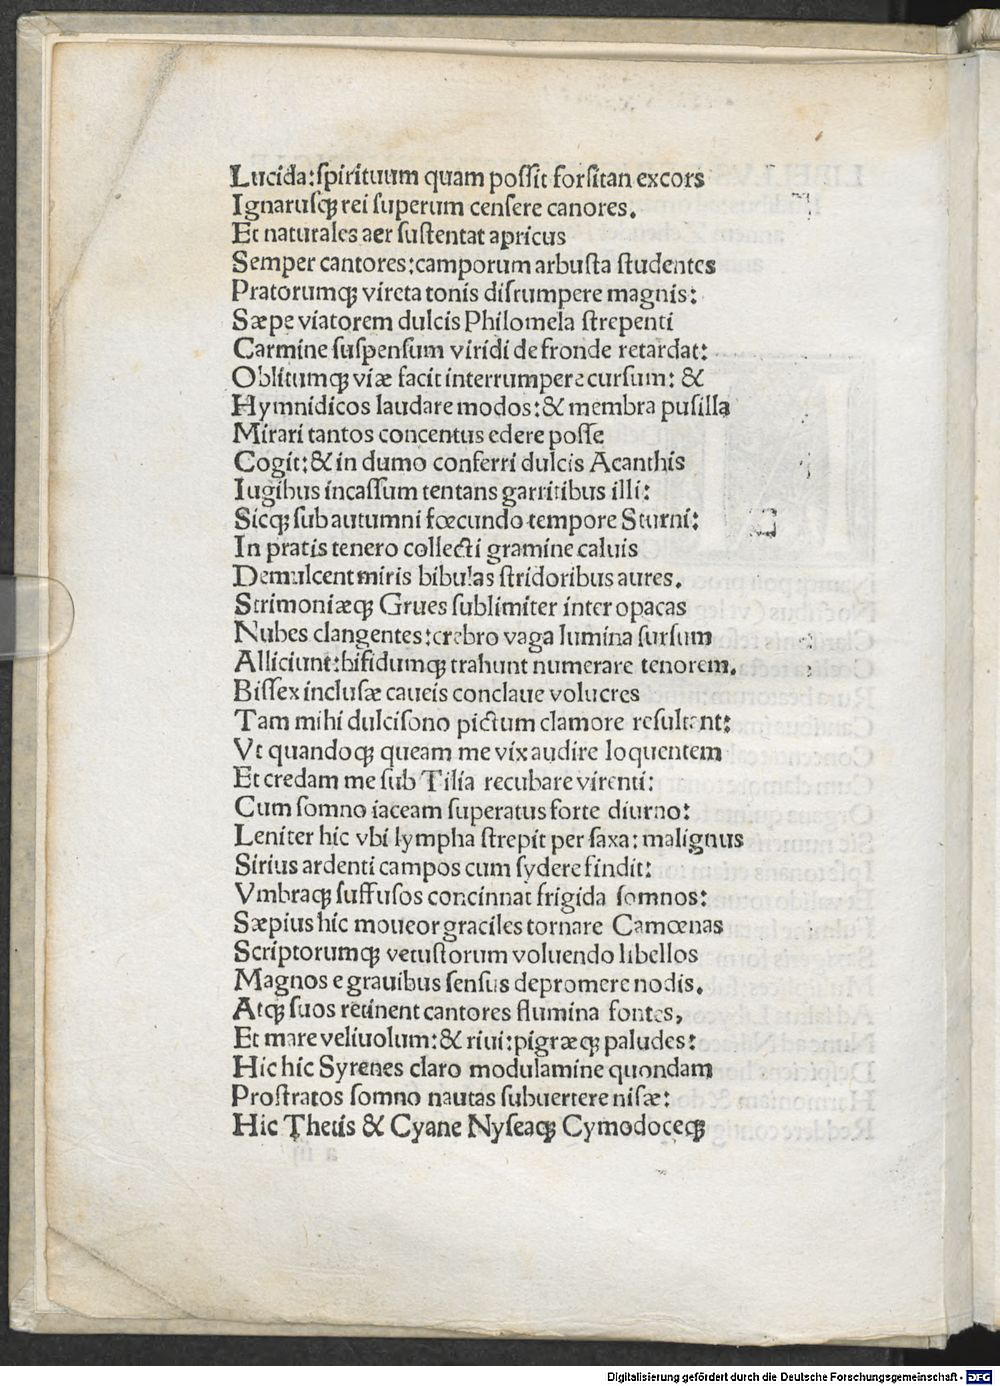 Lucida:ſpirituum quam poſſit forſitan excors
Ignaruſqꝫ rei ſuperum cenſere canores.
Et naturales aer ſuſtentat apricus
Semper cantores:camporum arbuſta ſtudentes
Pratorumqꝫ vireta tonis diſrumpere magnis:
Sæpe viatorem dulcis Philomela ſtrepenti
Carmine ſuſpenſum viridi de fronde retardat:
Oblitumqꝫ viæ facit interrumpere curſum: &
Hymnidicos laudare modos:& membra puſilla
Mirari tantos concentus edere poſſe
Cogit:& in dumo conferri dulcis Acanthis
Iugibus incaſſum tentans garritibus illi:
Sicqꝫ ſub autumni fœcundo tempore Sturni:
In pratis tenero collecti gramine caluis
Demulcent miris bibulas ſtridoribus aures.
Strimoniæqꝫ Grues ſublimiter inter opacas
Nubes clangentes:crebro vaga lumina ſurſum
Alliciunt:bifidumqꝫ trahunt numerare tenorem.
Biſſex incluſæ caueis conclaue volucres
Tam mihi dulciſono pictum clamore reſultent:
Vt quandoqꝫ queam me vix audire loquentem
Et credam me ſub Tilia recubare virenti:
Cum ſomno iaceam ſuperatus forte diurno:
Leniter hic vbi lympha ſtrepit per ſaxa: malignus
Sirius ardenti campos cum ſydere findit:
Vmbraqꝫ ſuffuſos concinnat frigida ſomnos:
Sæpius hic moueor graciles tornare Camœnas
Scriptorumqꝫ vetuſtorum voluendo libellos
Magnos e grauibus ſenſus depromere nodis.
Atqꝫ ſuos retinent cantores flumina fontes,
Et mare veliuolum:& riui:pigræqꝫ paludes:
Hic hic Syrenes claro modulamine quondam
Proſtratos ſomno nautas ſubuertere niſæ:
Hic Thetis & Cyane Nyſeaqꝫ Cymodoceqꝫ
Digitalisierung gefördert durch die Deutsche Forschungsgemeinschaft - DFG